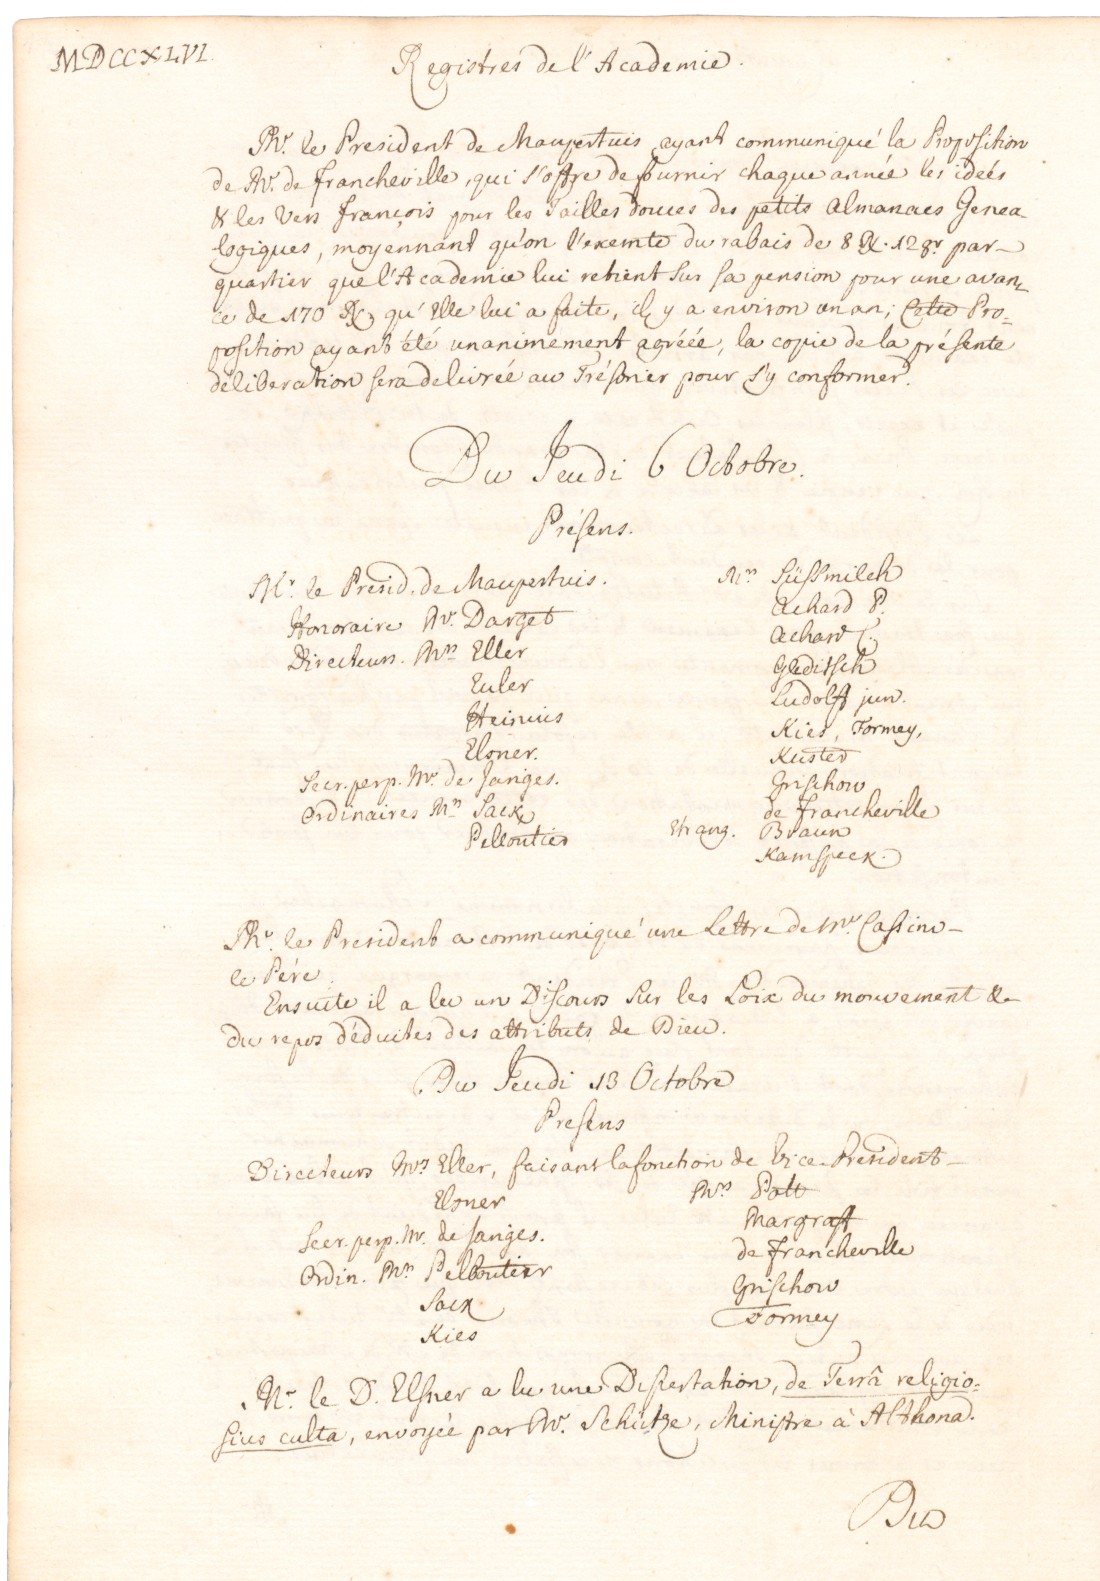 MDCCXLVI.
Registres de l'Academie.
Mr. le President de Maupertuis ayant communiqué la Proposition
de Mr. de Francheville, qui s'offre de fournir chaque année les ideés
& les Vers françois pour les Tailles douces des petits Almanacs Genea-
logiques, moyennant qu'on l'exemte du rabais de 8 Rx. 12 gr par
quartier que l'Academie lui retient sur sa pension pour une avan-
ce de 170 Rx, qu'Elle lui a faite, il y a environ un an; Cette Pro-
position ayant été unanimement agréée, la copie de la présente
déliberation sera delivrée au Trésorier pour s'y conformer.
Du Jeudi 6 Octobre.
Présens.
Mr. le Presid. de Maupertuis.
Honoraire Mr. Darget
Directeurs. Mrs Eller
Euler
Heinius
Elsner.
Secr. perp. Mr. de Jariges.
Ordinaires Mrs Sack
Pelloutier
Mrs Süssmilch
Achard P.
Achard C.
Gleditsch
Ludolff jun.
Kies, Formey,
Kuster
Grischow
de Francheville
Etrang. Braun
Kamspeck.
Mr. le President a communiqué une Lettre de Mr. Cassini
le Pére.
Ensuite il a lu un Discours sur les Loix du mouvement &
du repos déduites des attributs de Dieu.
Du Jeudi 13 Octobre
Presens
Directeurs Mrs Eller, faisant la fonction de Vice-President
Elsner
Secr. perp. Mr. de Jariges.
Ordin. Mrs Pelloutier
Sack
Kies
Mrs Pott
Margraff
de Francheville
Grischow
Formey
Mr. le D. Elsner a lu une Dissertation, de Terrâ religio-
sius culta, envoyée par Mr. Schütze, Ministre à Althona.
Du